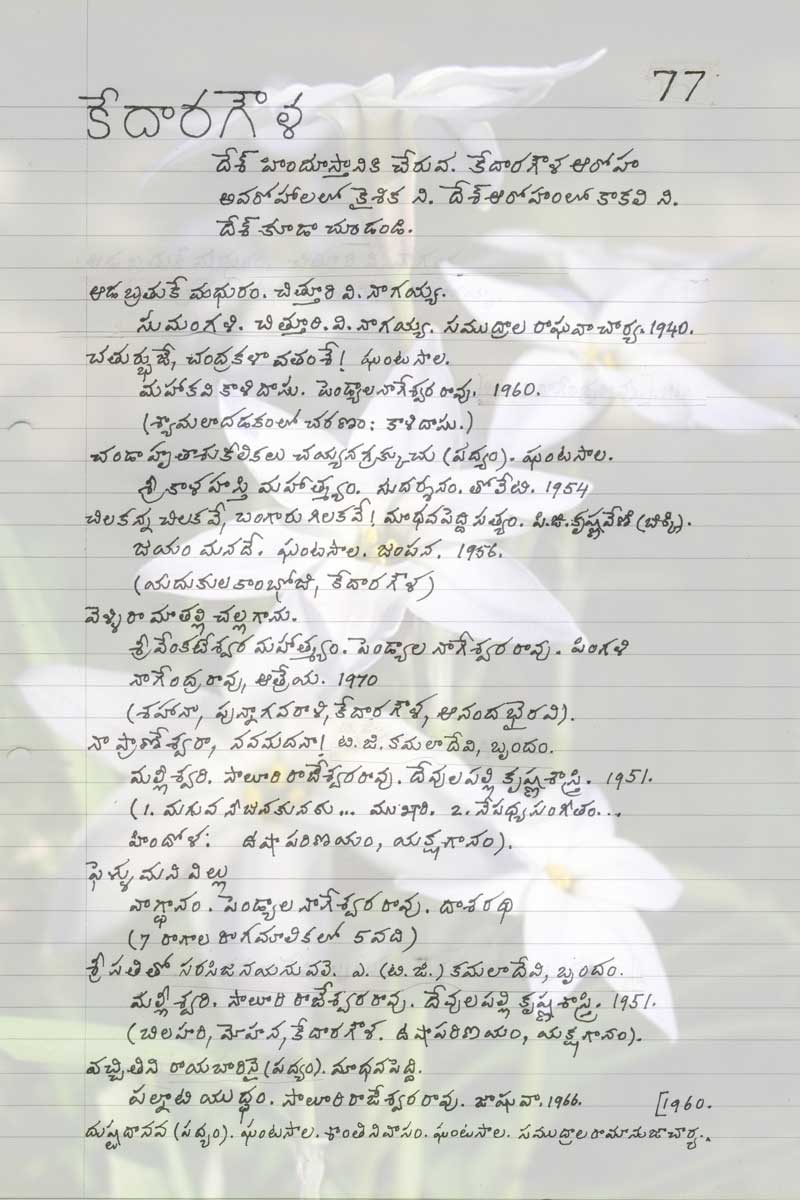 77
కేదారగౌళ
దేశ్ హిందూస్తానికి చేరువ. కేదారగౌళ ఆరోహ
అవరోహాలలో కైశిక ని. దేశ్ ఆరోహంలో కాకలి ని.
దేశ్ కూడా చూడండి.
ఆడ బ్రతుకే మధురం. చిత్తూరి వి. నాగయ్య.
సుమంగళి. చిత్తూరి. వి. నాగయ్య. సముద్రాల రాఘవాచార్య. 1940.
చతుర్భుజే, చంద్రకళా వతంశే! ఘంటసాల.
మహాకవి కాళిదాసు. పెండ్యాల నాగేశ్వర రావు. 1960.
(శ్యామలాదడకంలో చరణం: కాళిదాసు.)
చండా హృతాశుకీలికలు చయ్యన గ్రక్కుచు (పద్యం). ఘంటసాల.
శ్రీ కాళహస్తి మహాత్మ్యం. సుదర్శనం. తోలేటి. 1954
చిలకన్న చిలకవే, బంగారు గిలకవే! మాధవపెద్ది సత్యం. పి.జి. కృష్ణవేణి (జిక్కి).
జయం మనదే. ఘంటసాల. జంపన. 1956.
(యదుకులకాంభోజి, కేదారగౌళ)
వెళ్ళిరా మాతల్లి చల్లగాను.
శ్రీ వేంకటేశ్వర మహాత్మ్యం. పెండ్యాల నాగేశ్వర రావు. పింగళి
నాగేంద్ర రావు, ఆత్రేయ. 1970
(శహానా, పున్నాగవరాళి, కేదారగౌళ, ఆనంద భైరవి).
నా ప్రాణేశ్వరా, నవమదనా! టి. జి. కమలాదేవి, బృందం.
మల్లీశ్వరి. సాలూరి రాజేశ్వరరావు. దేవులపల్లి కృష్ణశాస్త్రి. 1951.
(1. మగువ నీ జనకునకు... ముఖారి. 2. నేపథ్య సంగీతం...
హిందోళ: ఉషా పరిణయం, యక్షగానం).
ఫెళ్ళుమని విల్లు
వాగ్దానం. పెండ్యాల నాగేశ్వర రావు. దాశరథి
(7 రాగాల రాగమాలికలో 5వది)
శ్రీ పతితో సరసిజనయనువలె. ఎ. (టి. జి.) కమలాదేవి, బృందం.
మల్లీశ్వరి. సాలూరి రాజేశ్వరరావు. దేవులపల్లి కృష్ణశాస్త్రి. 1951.
(బిలహరి, మోహన, కేదారగౌళ. ఉషాపరిణయం, యక్షగానం).
వచ్చితిని రాయబారినై (పద్యం). మాధవపెద్ది.
పల్నాటి యుద్ధం. సాలూరి రాజేశ్వర రావు. జాషువా. 1966. [1960.
దుష్టదానవ (పద్యం). ఘంటసాల. శాంతి నివాసం. ఘంటసాల. సముద్రాల రామానుజాచార్య..